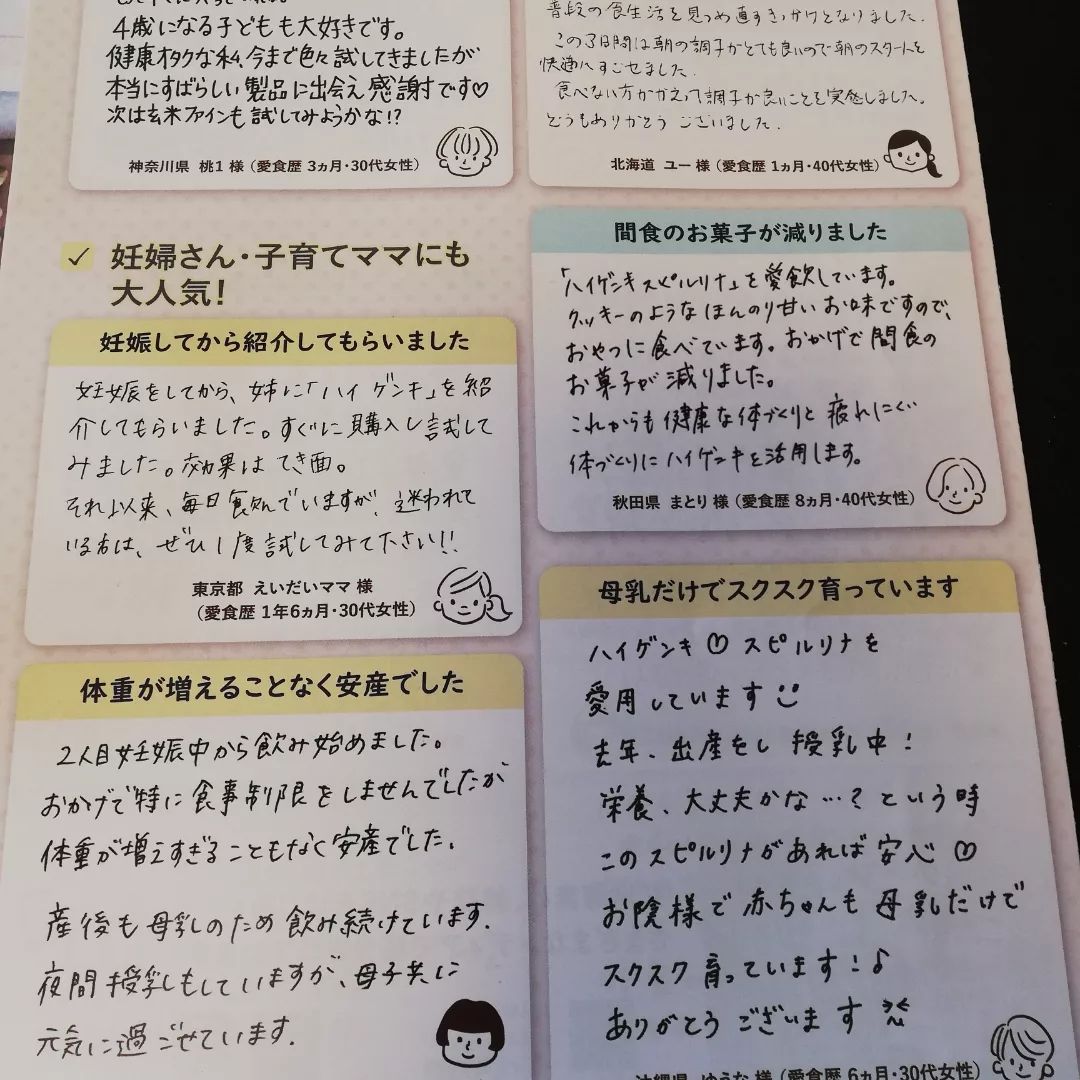 4歳になる子どもも大好きです。
健康オタクな私、今まで色々試してきましたが
本当にすばらしい製品に出会え感謝です♡
次は玄米ファインも試してみようかな!?
神奈川県 桃1 様（愛食歴 3ヵ月・30代女性）
普段の食生活を見つめ直すきっかけとなりました。
この3日間は朝の調子がとても良いので朝のスタートを
快適にすごせました。
食べない方がかえって調子が良いことを実感しました。
どうもありがとうございました。
北海道 ユー 様（愛食歴 1ヵ月・40代女性）
✓ 妊婦さん・子育てママにも
大人気!
妊娠してから紹介してもらいました
妊娠をしてから、姉に「ハイゲンキ」を紹
介してもらいました。すぐに購入し試して
みました。効果はてき面。
それ以来、毎日飲んでいますが、迷われて
いる方は、ぜひ1度試してみて下さい!!
東京都 えいだいママ 様
（愛食歴 1年6ヵ月・30代女性）
体重が増えることなく安産でした
2人目妊娠中から飲み始めました。
おかげで特に食事制限をしませんでしたが
体重が増えすぎることもなく安産でした。
産後も母乳のため飲み続けています。
夜間授乳もしていますが、母子共に
元気に過ごせています。
間食のお菓子が減りました
「ハイゲンキスピルリナ」を愛飲しています。
クッキーのようなほんのり甘いお味ですので、
おやつに食べています。おかげで間食の
お菓子が減りました。
これからも健康な体づくりと疲れにくい
体づくりにハイゲンキを活用します。
秋田県 まとり 様（愛食歴 8ヵ月・40代女性）
母乳だけでスクスク育っています
ハイゲンキ♡スピルリナを
愛用しています
去年、出産をし授乳中!
栄養、大丈夫かな…?という時
このスピルリナがあれば安心♡
お陰様で赤ちゃんも母乳だけで
スクスク育っています!♪
ありがとうございます
沖縄県 ゆうな 様（愛食歴 6ヵ月・30代女性）